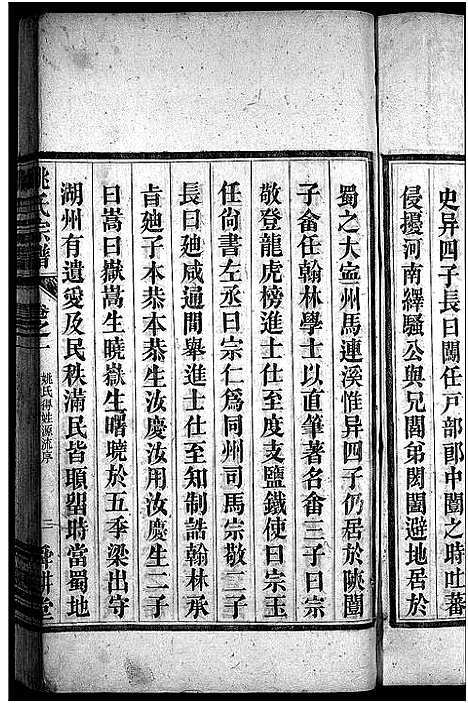 史异四子長曰闓任戸部郎中闓之時吐蕃
侵擾河南繹騷公與兄閶弟閎闓避地居於
蜀之大寍州馬連溪惟异四子仍居於陝闓
子畲任翰林學士以直筆著名畲三子曰宗
敬登龍虎榜進士仕至度支鹽鐵使曰宗玉
任尙書左丞曰宗仁爲同州司馬宗敬二子
長曰廸咸通間舉進士仕至知制誥翰林承
旨廸子本恭本恭生汝慶汝用汝慶生二子
曰嵩曰嶽嵩生曉嶽生曙曉於五季梁出守
湖州有遺愛及民秩滿民皆頭畱時當蜀地
姚氏宗譜
卷之一
姚氏得姓源流序
三
舜耕堂